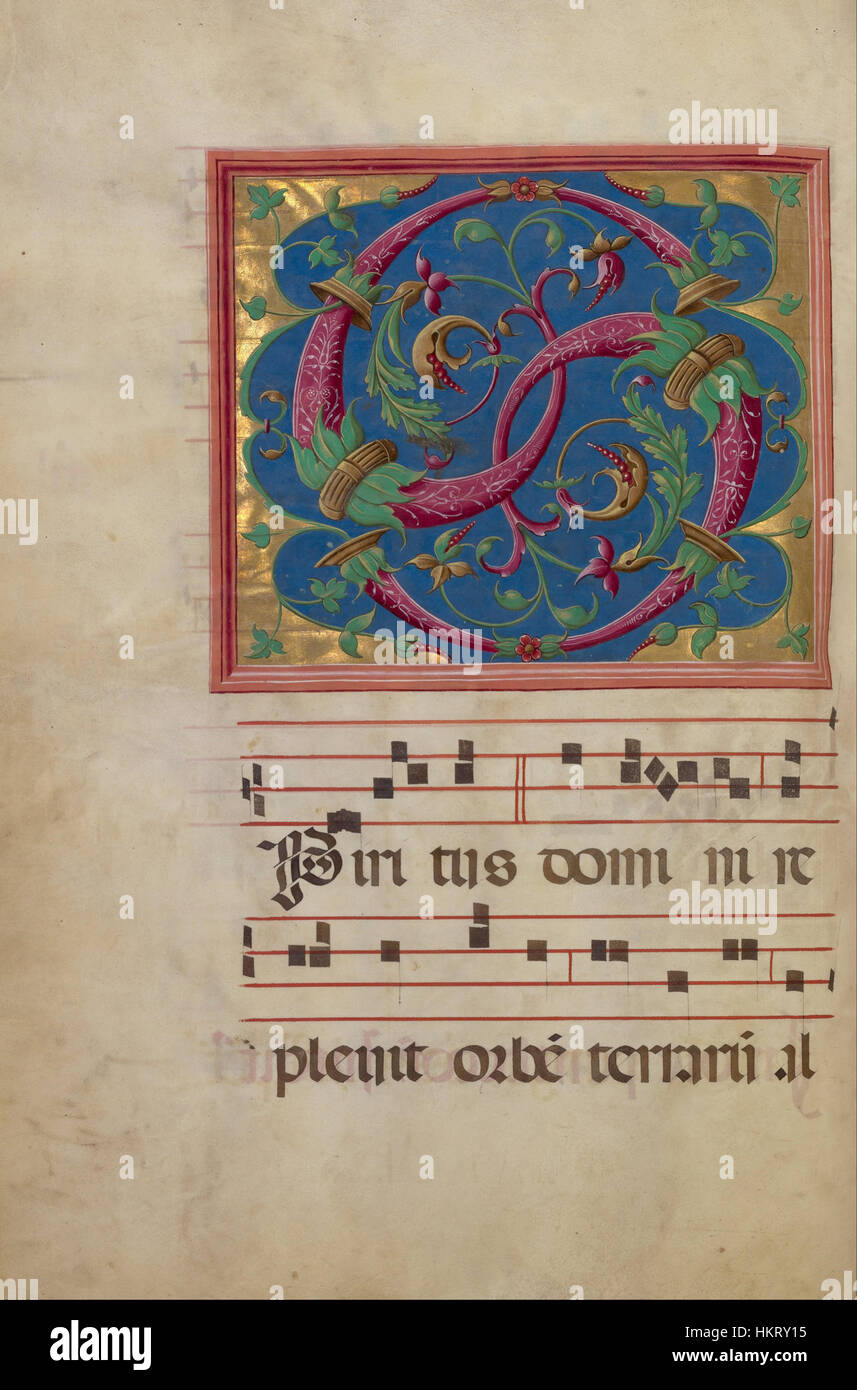 S
Piri tus domi ni re
pleuit orbē terrarū al
a
alamy
a
alamy
a
alamy
Image ID: HKRY15
www.alamy.com